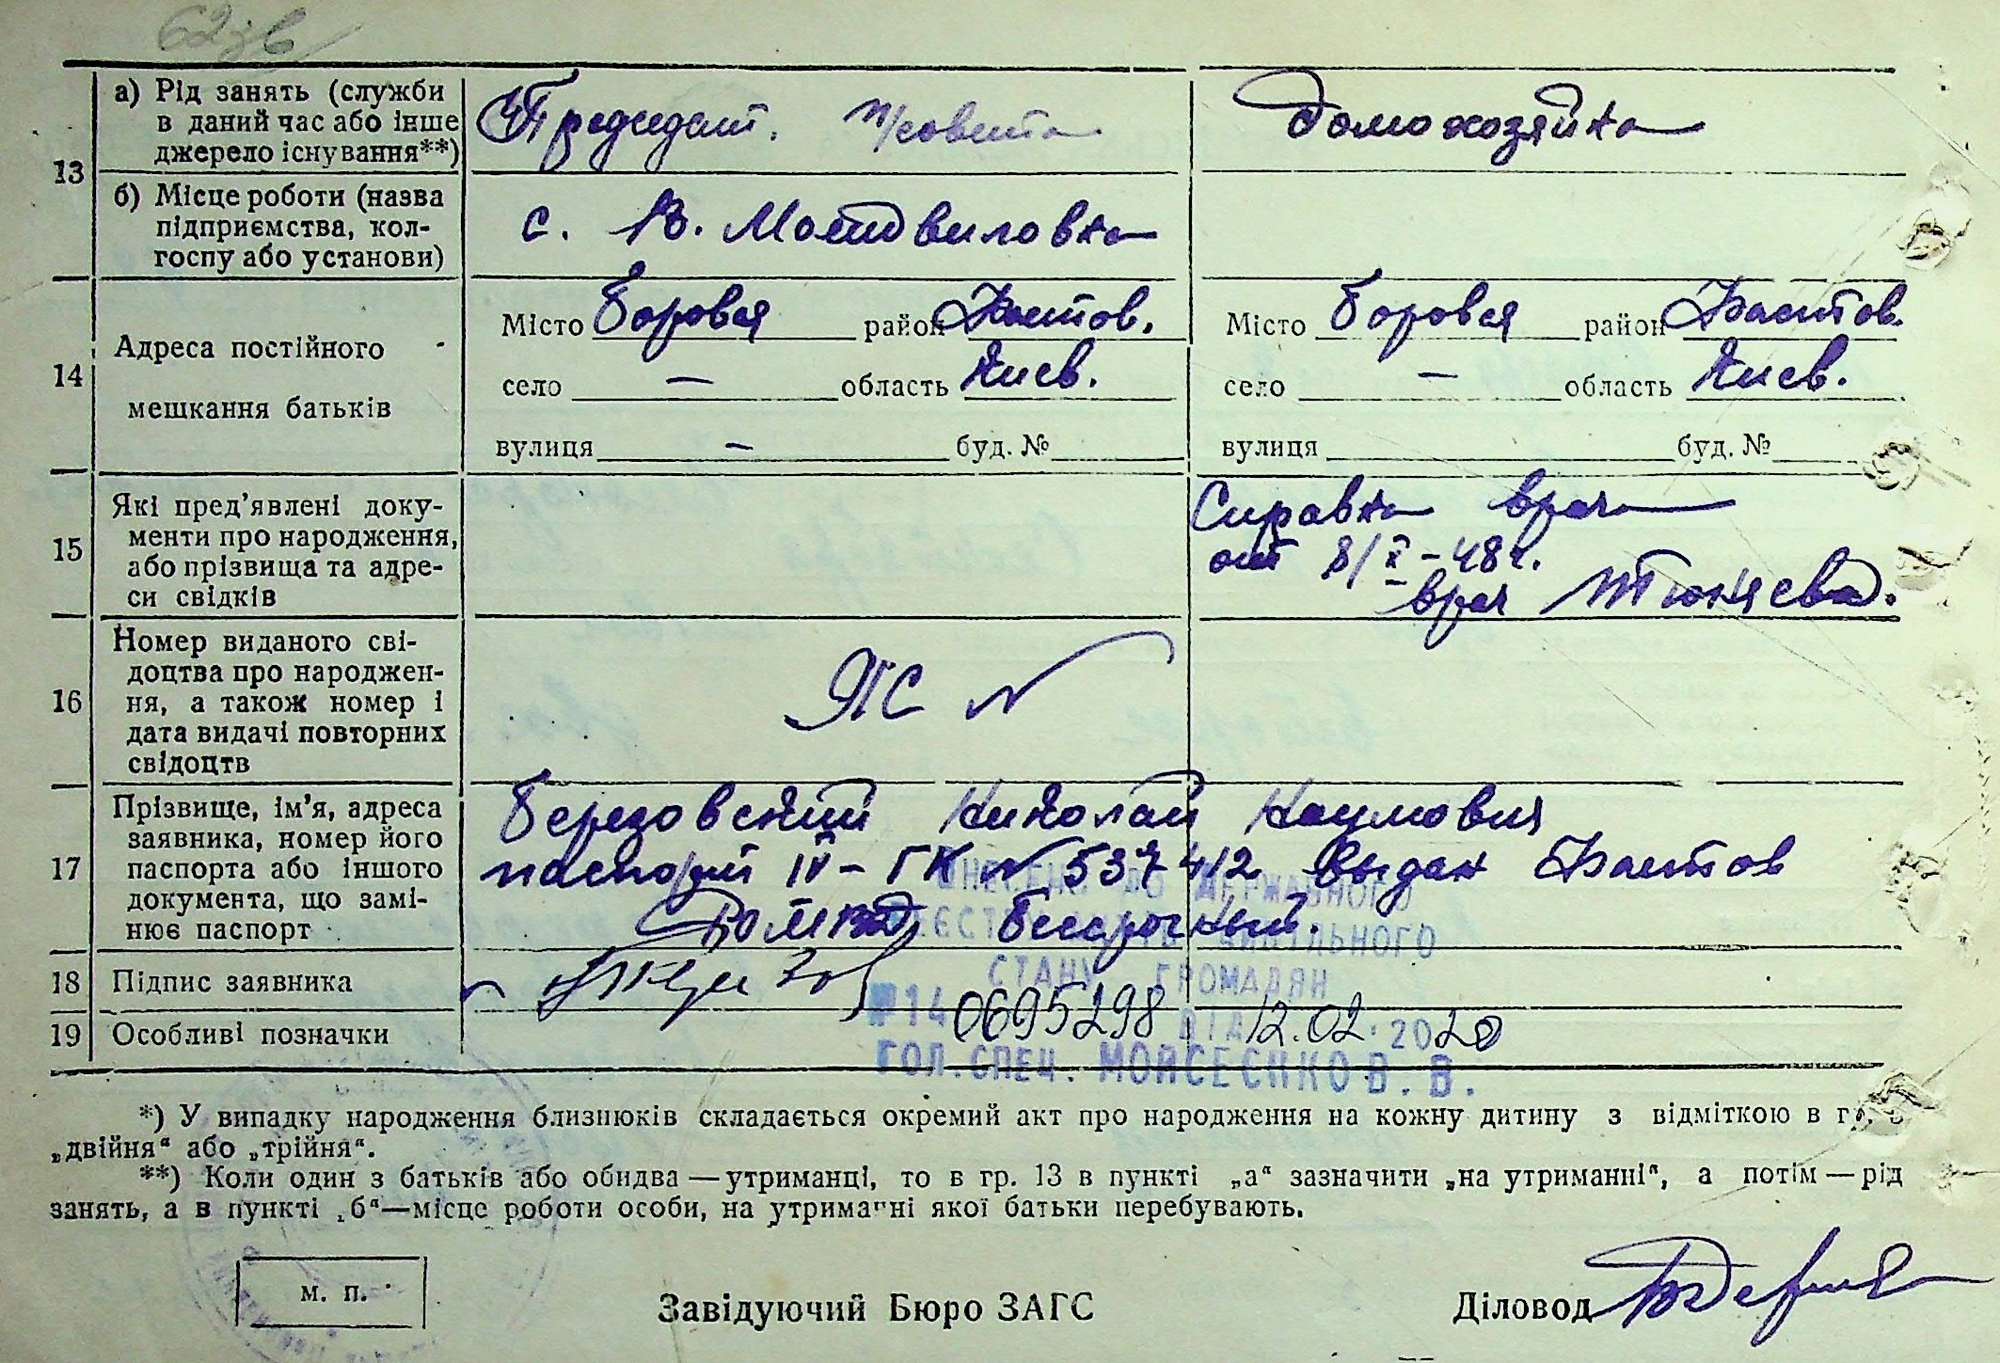 13
а) Рід занять (служби
в даний час або інше
джерело існування**)
Председат. с/совета
домохозяйка
б) Місце роботи (назва
підприємства, кол-
госпу або установи)
с. В. Мотовиловка
14
Адреса постійного
мешкання батьків
Місто Боровая район Фастов.
село — область Киев.
вулиця — буд. №
Місто Боровая район Фастов.
село — область Киев.
вулиця буд. №
15
Які пред'явлені доку-
менти про народження,
або прізвища та адре-
си свідків
Справка врача
от 8/X-48г.
врач Тюняева.
16
Номер виданого сві-
доцтва про народжен-
ня, а також номер і
дата видачі повторних
свідоцтв
ЯС №
17
Прізвище, ім'я, адреса
заявника, номер його
паспорта або іншого
документа, що замі-
нює паспорт
Березовский Николай Наумович
паспорт IV-ГК № 537412 выдан Фастов
РОМВД бессрочный.
ВНЕСЕНО ДО ДЕРЖАВНОГО
РЕЄСТРУ АКТІВ ЦИВІЛЬНОГО
СТАНУ ГРОМАДЯН
18 Підпис заявника
19 Особливі позначки
№14 0695298 ВІД 12.02.2020
ГОЛ.СПЕЦ. МОЙСЕЄНКО В. В.
*) У випадку народження близнюків складається окремий акт про народження на кожну дитину з відміткою в гр.
„двійня" або „трійня".
**) Коли один з батьків або обидва — утриманці, то в гр. 13 в пункті „а" зазначити „на утриманні", а потім — рід
занять, а в пункті „б"—місце роботи особи, на утриманні якої батьки перебувають.
м. п.
Завідуючий Бюро ЗАГС
Діловод